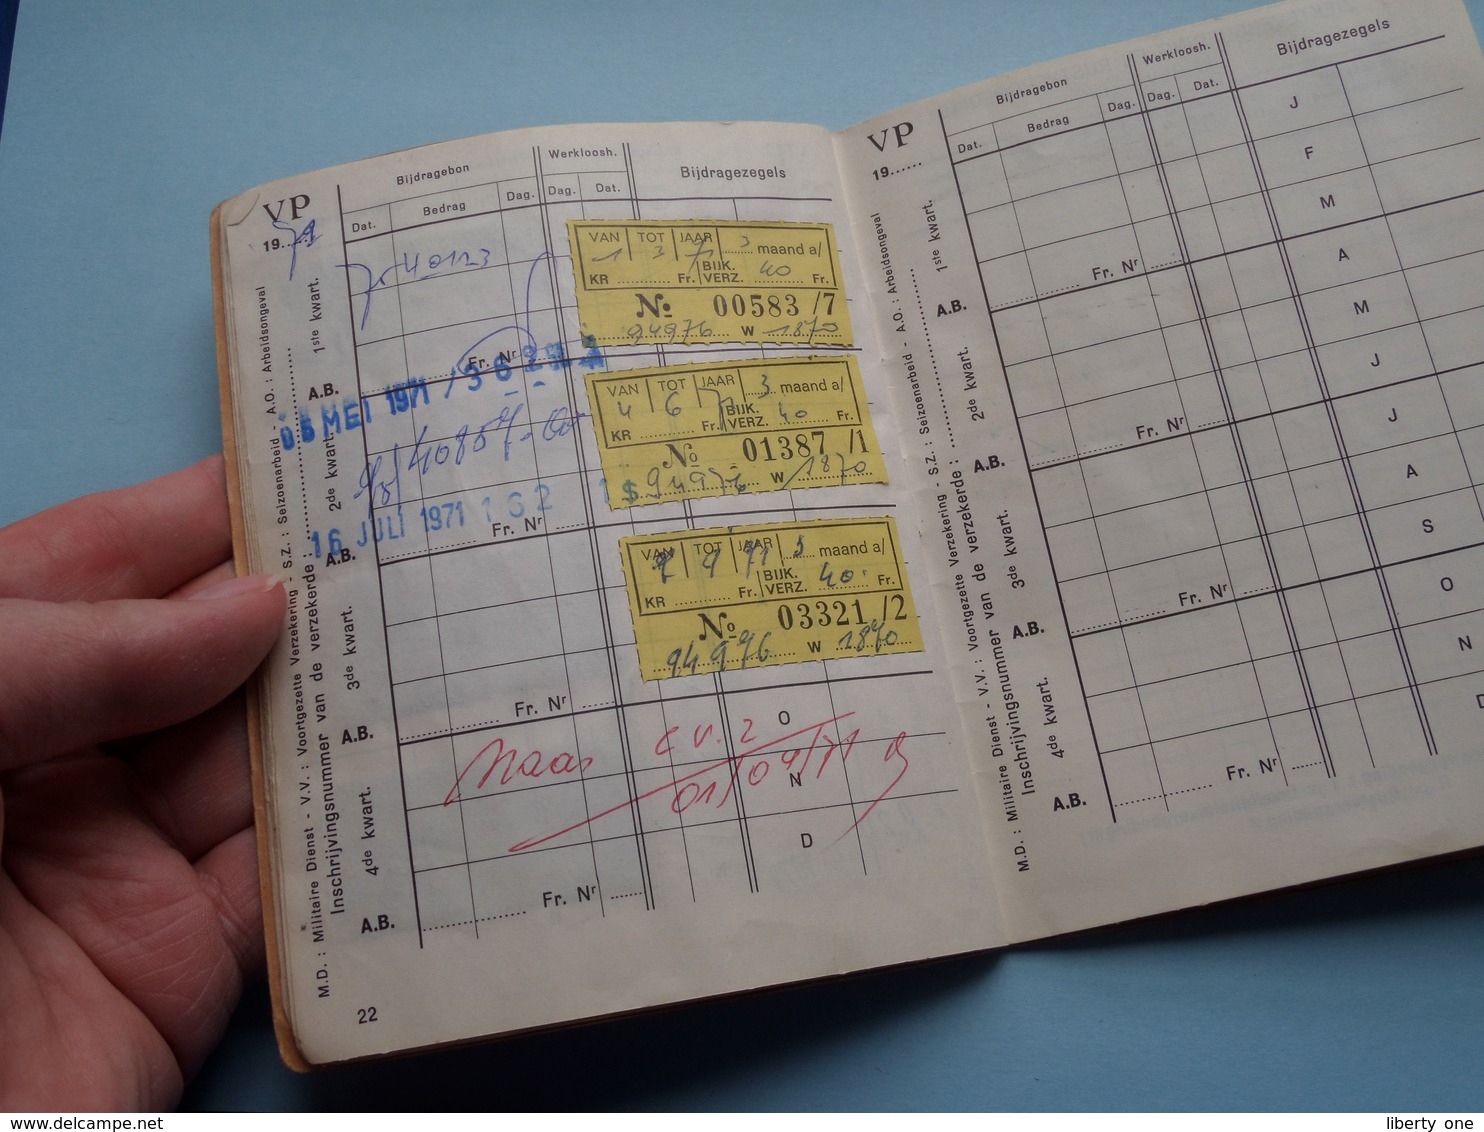 VP
1971
Bijdragebon
Werkloosh.
Bijdragezegels
Dat.
Bedrag
Dag.
Dag.
Dat.
40123
VAN TOT JAAR 3 maand a/
1 3 71 BIJK. 40
KR Fr. VERZ. Fr.
No 00583 /7
94976 W 1870
1ste kwart.
A.B.
Fr. Nr
05 MEI 1971 /
VAN TOT JAAR 3 maand a/
4 6 71 BIJK. 40
KR Fr. VERZ. Fr.
No 01387 /1
94976 W 1870
2de kwart.
A.B.
16 JULI 1971 162
Fr. Nr
VAN TOT JAAR 3 maand a/
7 9 71 BIJK. 40
KR Fr. VERZ. Fr.
No 03321 /2
94976 W 1870
3de kwart.
A.B.
Fr. Nr
O
N
D
01/04/71
4de kwart.
A.B.
Fr. Nr
M.D. : Militaire Dienst - V.V. : Voortgezette Verzekering - S.Z. : Seizoenarbeid - A.O. : Arbeidsongeval
Inschrijvingsnummer van de verzekerde :
22
VP
19......
Bijdragebon
Werkloosh.
Bijdragezegels
Dat.
Bedrag
Dag.
Dag.
Dat.
J
F
M
1ste kwart.
A.B.
Fr. Nr
A
M
J
2de kwart.
A.B.
Fr. Nr
J
A
S
3de kwart.
A.B.
Fr. Nr
O
N
D
4de kwart.
A.B.
Fr. Nr
M.D. : Militaire Dienst - V.V. : Voortgezette Verzekering - S.Z. : Seizoenarbeid - A.O. : Arbeidsongeval
Inschrijvingsnummer van de verzekerde :
www.delcampe.net
liberty one